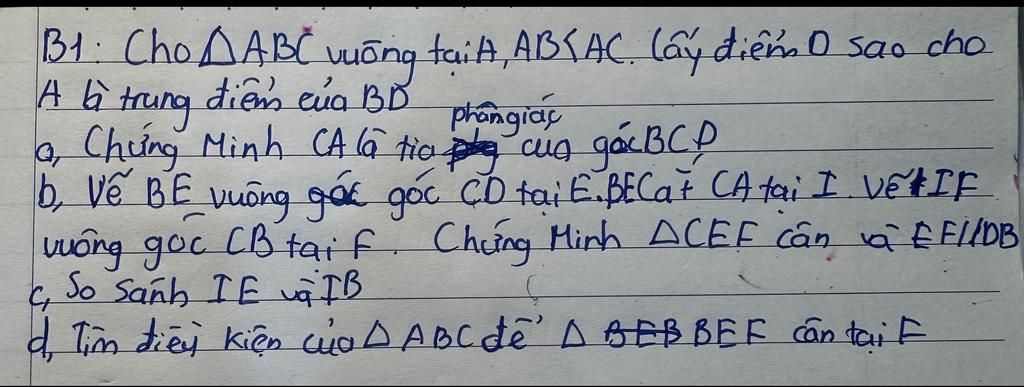 B1: Cho △ABC vuông tại A, AB<AC. Lấy điểm D sao cho
A là trung điểm của BD
a, Chứng Minh CA là tia phân giác của góc BCD
b, Vẽ BE vuông góc CD tại E. BE Cắt CA tại I. Vẽ IF
vuông góc CB tại F. Chứng Minh △CEF cân và EF//DB
c, So sánh IE và IB
d, Tìm điều kiện của △ABC để △ BEF cân tại F